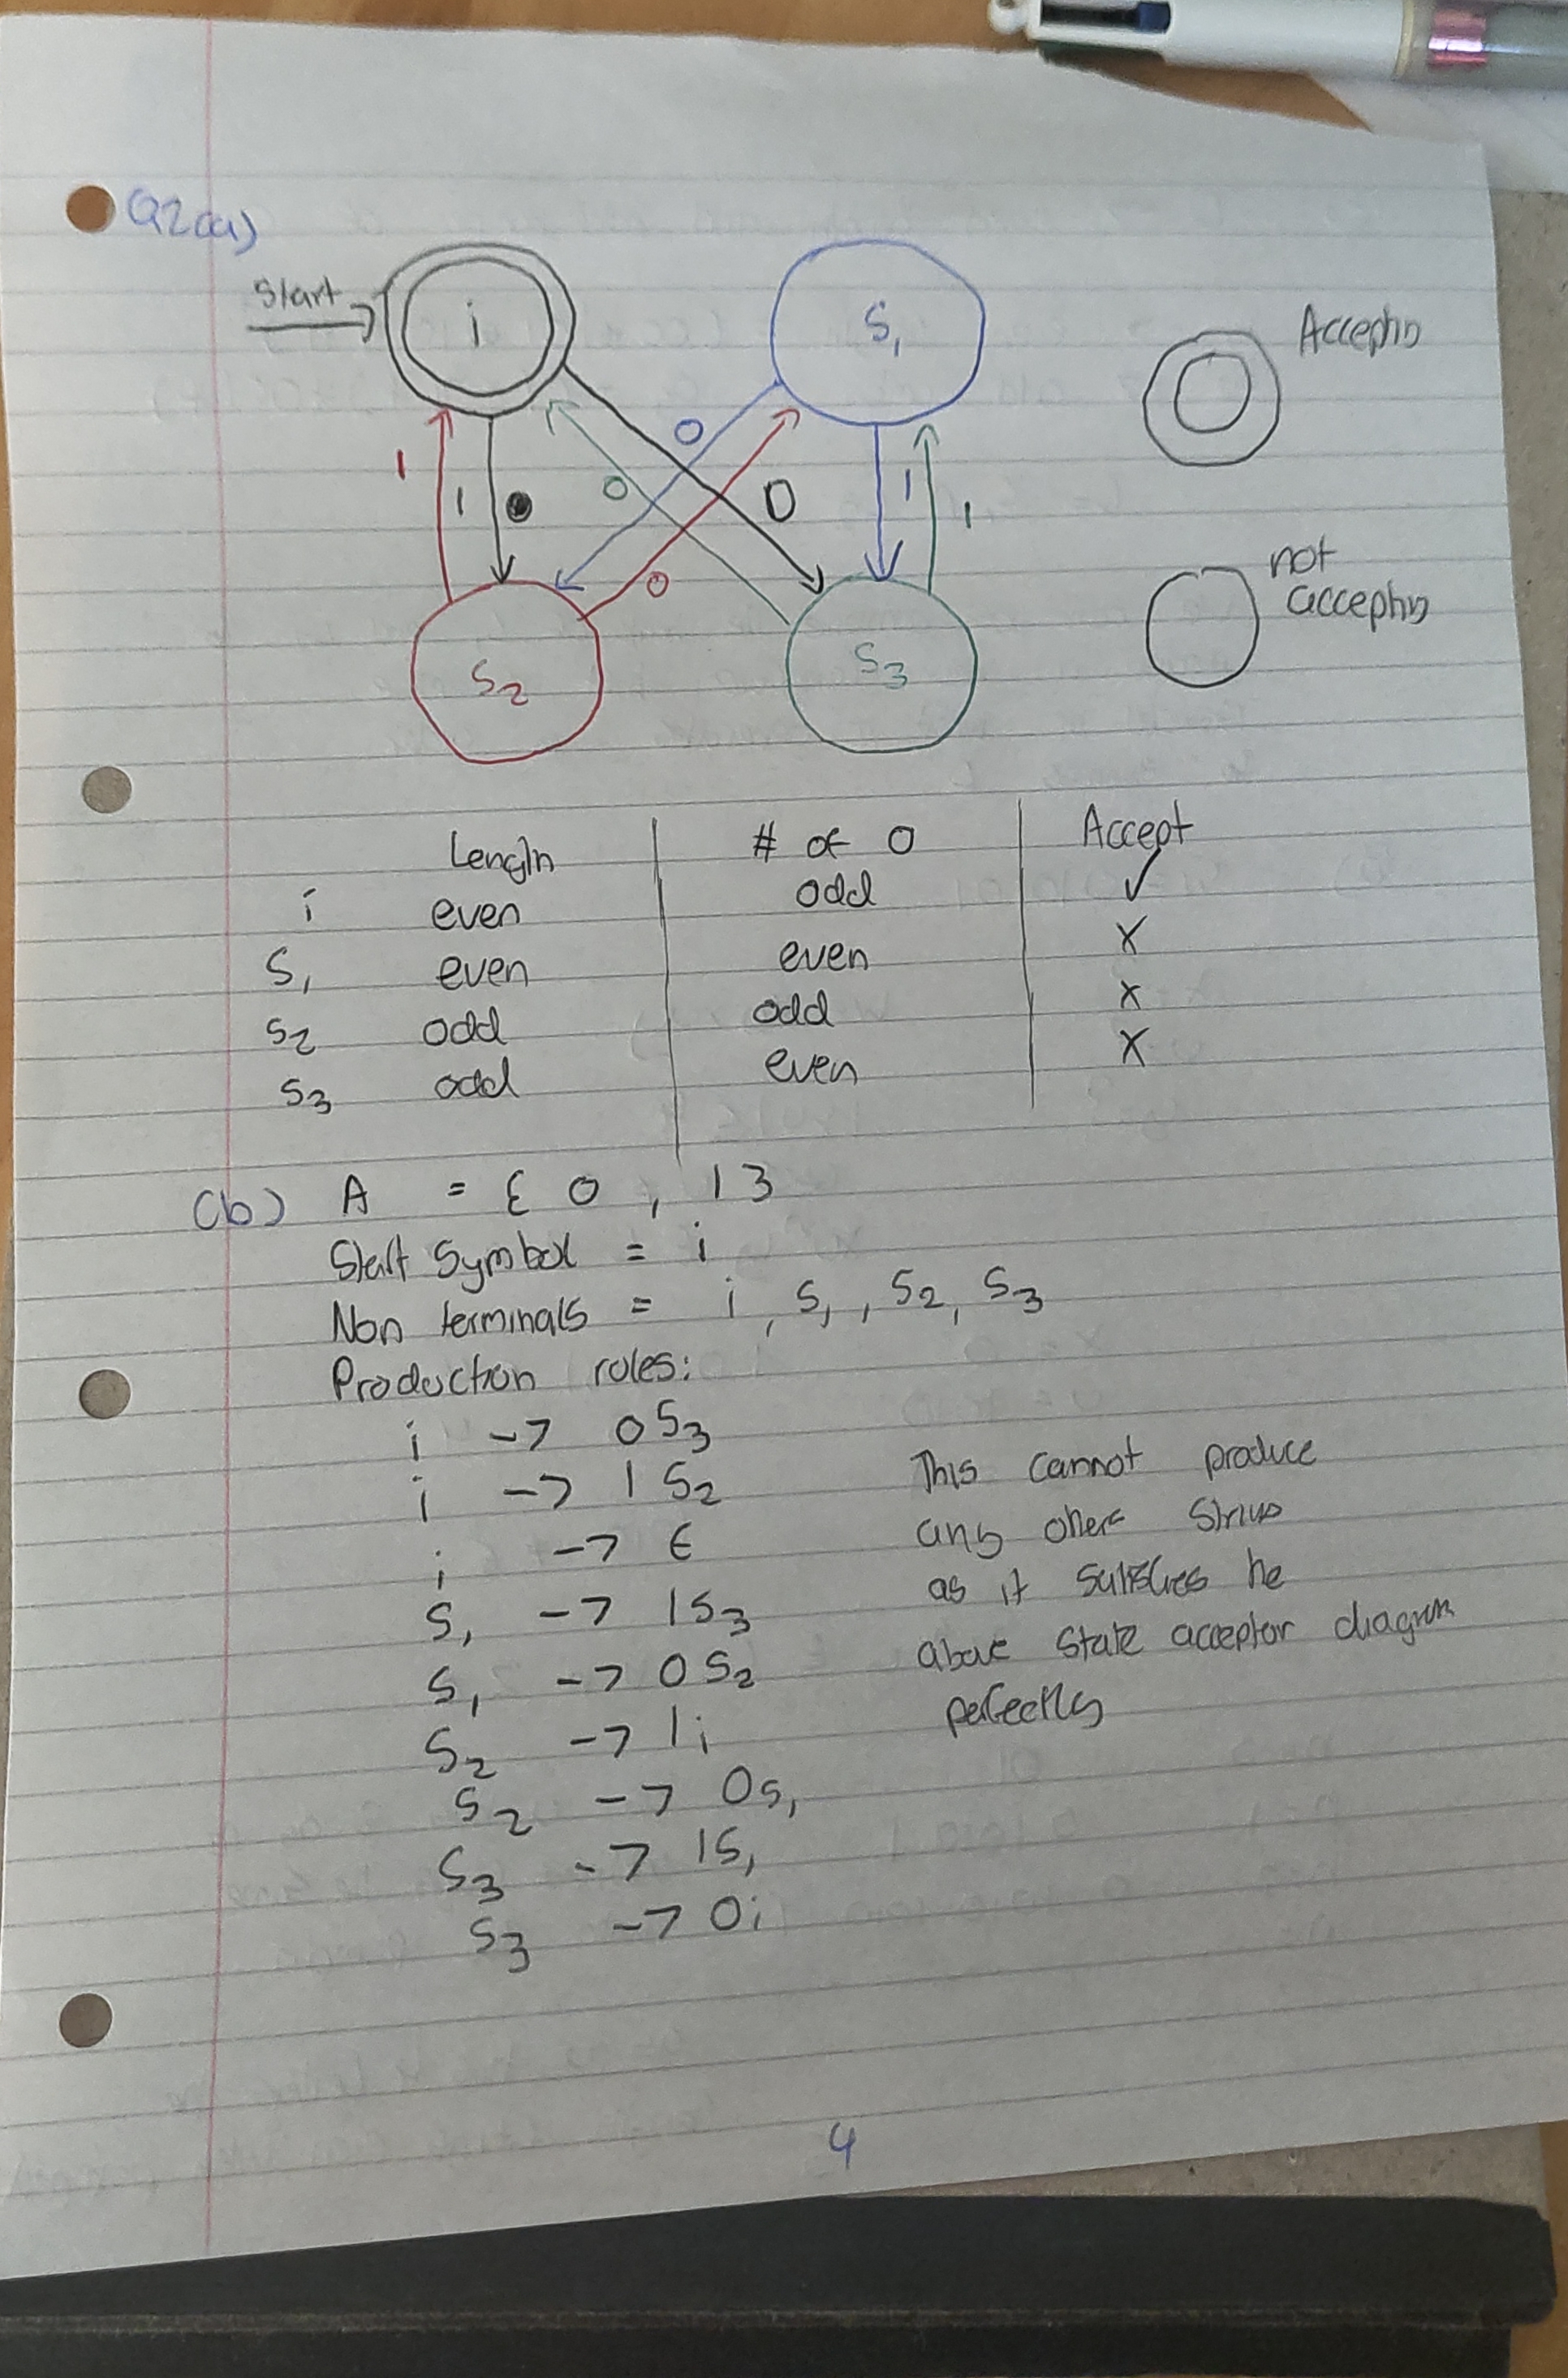 Q2(a)
Start
i
S₁
Accepting
0
1
1
0
0
1
1
0
not
accepting
S₂
S₃
Length # of 0 Accept
i even odd ✓
S₁ even even X
S₂ odd odd X
S₃ odd even X
(b) A = { 0 , 1 }
Start Symbol = i
Non terminals = i , S₁ , S₂, S₃
Production rules:
i -> 0S₃
i -> 1S₂
i -> ε
S₁ -> 1S₃
S₁ -> 0S₂
S₂ -> 1i
S₂ -> 0S₁
S₃ -> 1S₁
S₃ -> 0i
This cannot produce
any other strings
as it satisfies the
above state acceptor diagram
perfectly
4